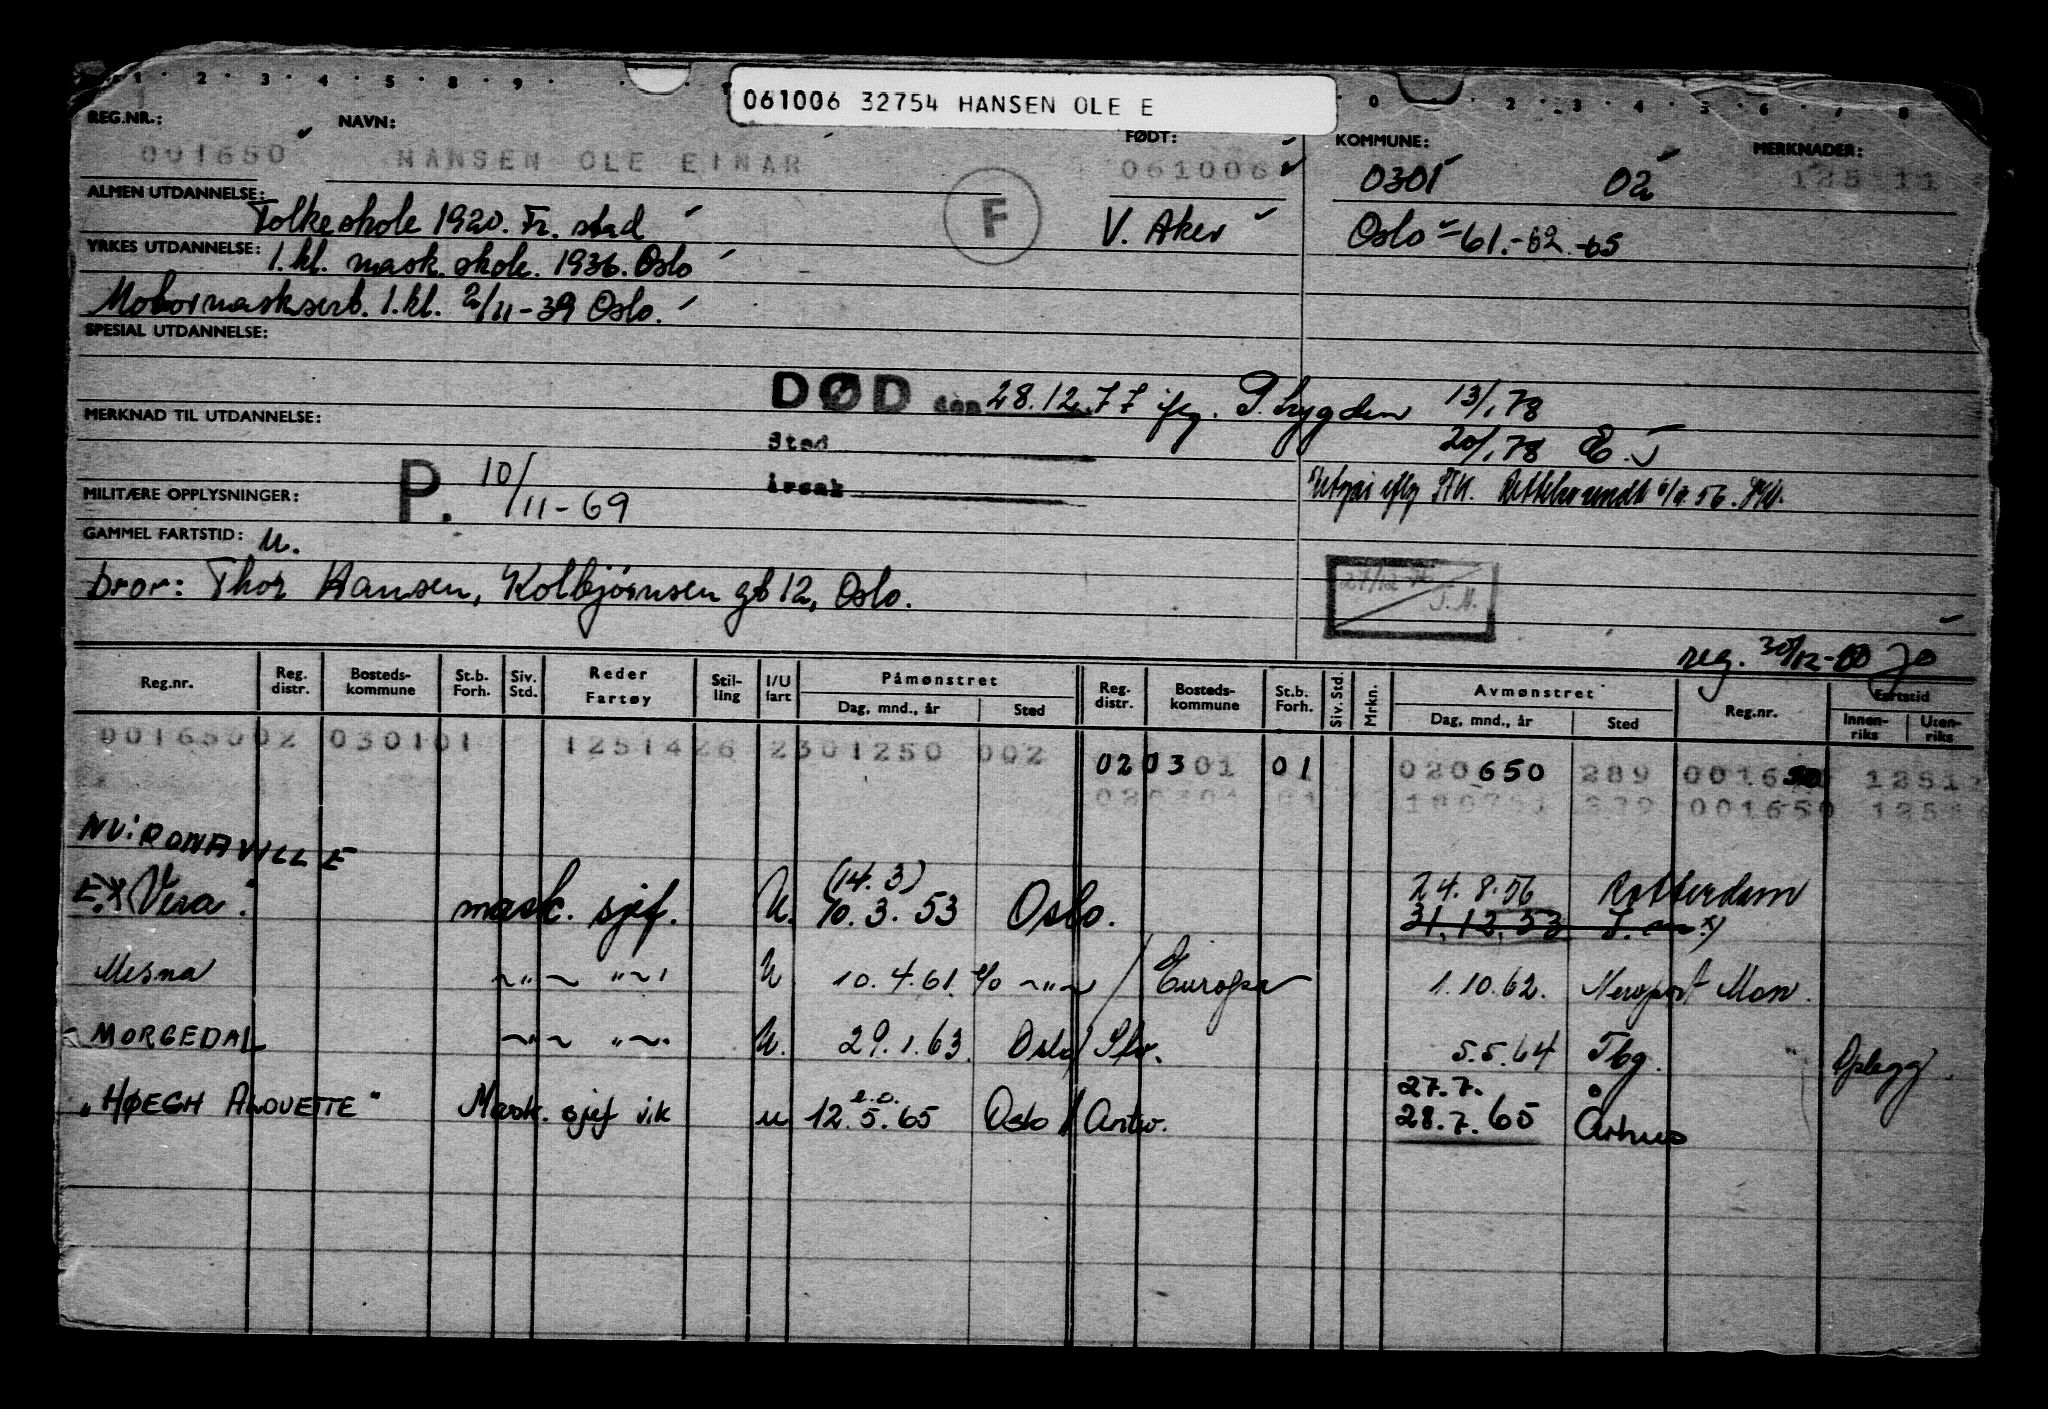 061006 32754 HANSEN OLE E
REG.NR.: NAVN: FØDT: KOMMUNE: MERKNADER:
001650 HANSEN OLE EINAR 061006 0301 02 125 11
ALMEN UTDANNELSE: Folkeskole 1920. Fr. stad F V. Aker Oslo -61.-62.-65
YRKES UTDANNELSE: 1.kl. mask. skole. 1936. Oslo
Motormasksert. 1.kl. 2/11-39 Oslo.
SPESIAL UTDANNELSE:
DØD den 28.12.77 iflg. 13/1.78
MERKNAD TIL UTDANNELSE:
Sted 20/1.78 E.J
årsak
MILITÆRE OPPLYSNINGER: P. 10/11-69
GAMMEL FARTSTID: U.
bror: Thor Hansen, Kolbjørnsen gt 12, Oslo.
reg. 30/12-60 Jo
Reg.nr. Reg. distr. Bosteds-kommune St.b. Forh. Siv. Std. Reder Fartøy Stil-ling I/U fart Påmønstret Dag, mnd., år Sted Reg. distr. Bosteds-kommune St.b. Forh. Siv. Std. Mrkn. Avmønstret Dag, mnd., år Sted Reg.nr. Fartstid Innen-riks Uten-riks
00165002 030101 1251426 2301250 002 020301 01 020650 289 001650 1251
001650
NU: RONAVILLE
EX Vera. mask. sjef. U. (14.3) 10.3.53 Oslo. 24.8.56 Rotterdam
31.12.53
Mesna -"- -"- U. 10.4.61. -"- / Europa 1.10.62. Newport Mon.
MORGEDAL -"- -"- U. 29.1.63. Oslo/ 5.5.64 Tbg. Oplagg.
"HØEGH ALOUETTE" Mask. sjef vik u 12.5.65 Oslo / Antw. 27.7.
28.7.65 Århus